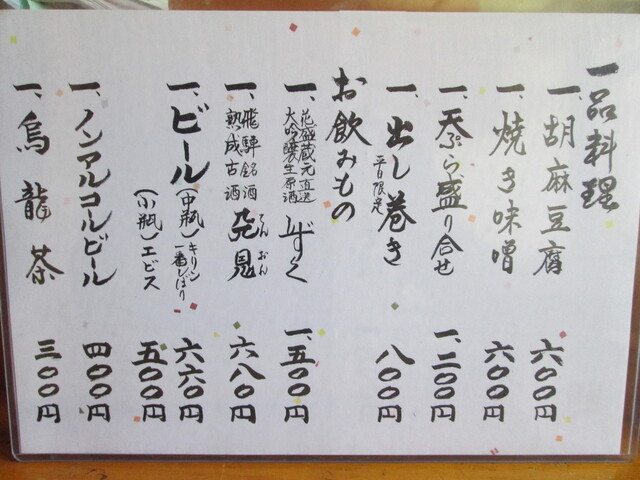 一品料理
一、胡麻豆腐 六〇〇円
一、焼き味噌 六〇〇円
一、天ぷら盛り合せ 一、二〇〇円
一、出し巻き 平日限定 八〇〇円
お飲みもの
一、花盛蔵元直送
大吟醸生原酒 しずく 一、五〇〇円
一、飛騨銘酒
熟成古酒 六八〇円
一、ビール (中瓶) キリン
一番しぼり 六六〇円
(小瓶) エビス 五〇〇円
一、ノンアルコールビール 四〇〇円
一、烏龍茶 三〇〇円